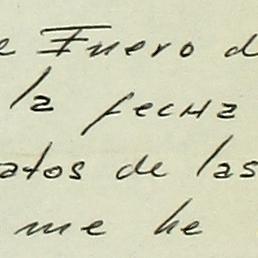 e Enero d
la fecha
atos de las
me he